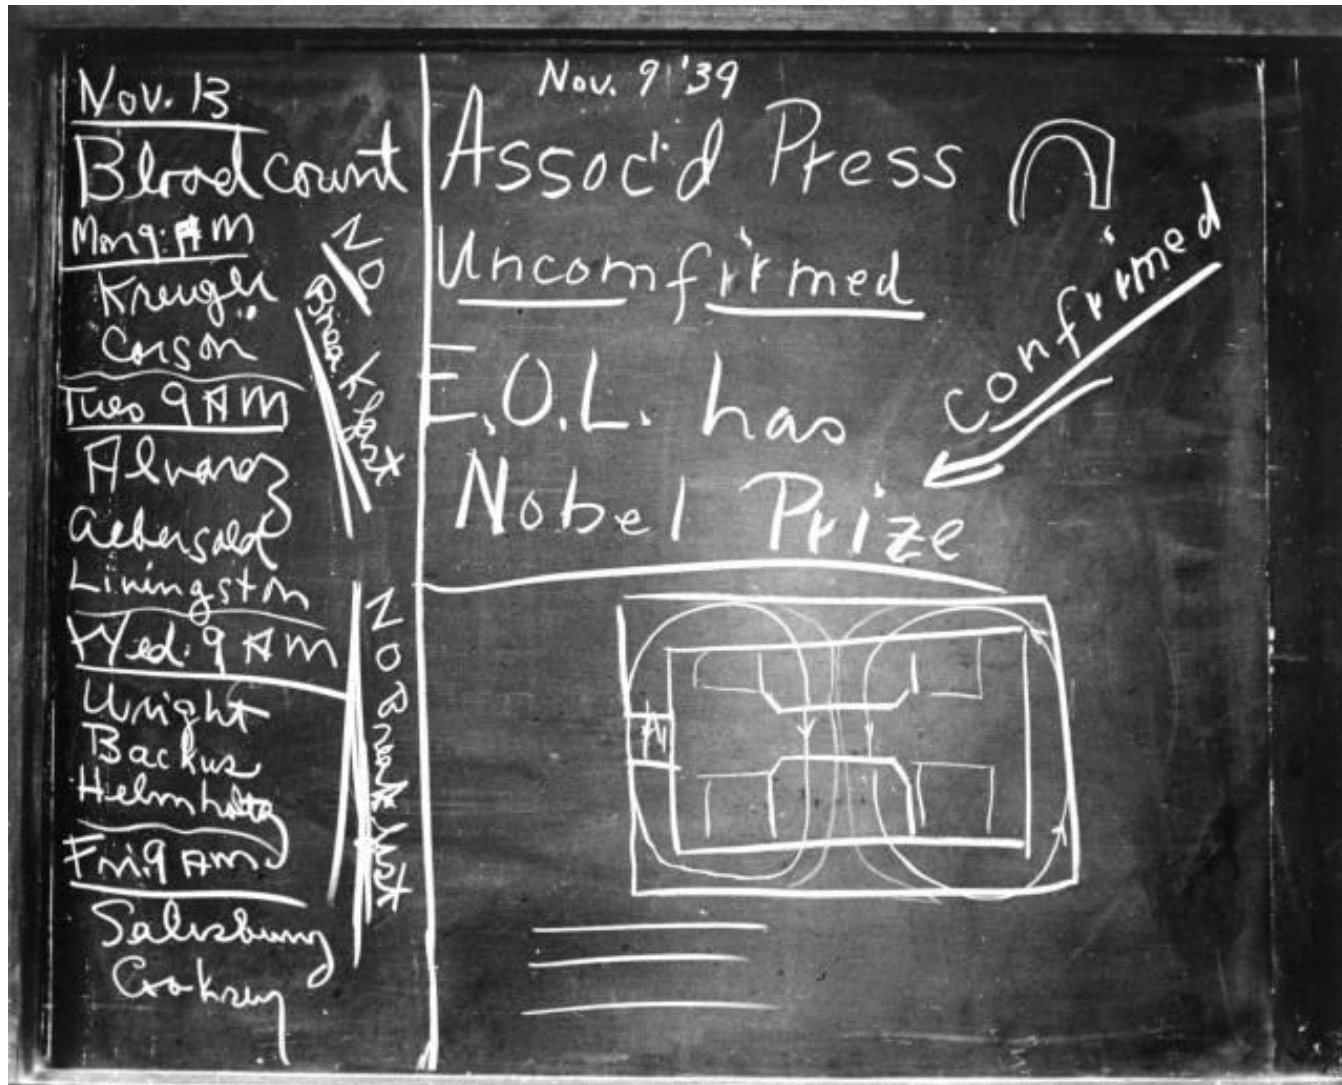 Nov. 13
Blood count
Mon 9: AM
Kreuger
Corson
Tues 9 AM
Alvarez
Aebersold
Livingston
Wed. 9 AM
Wright
Backus
Helmholtz
Fri 9 AM
Salisbury
Cooksey
NO
Breakfast
NO Breakfast
Nov. 9 '39
Assoc'd Press
Uncomfirmed
E.O.L. has
Nobel Prize
confirmed